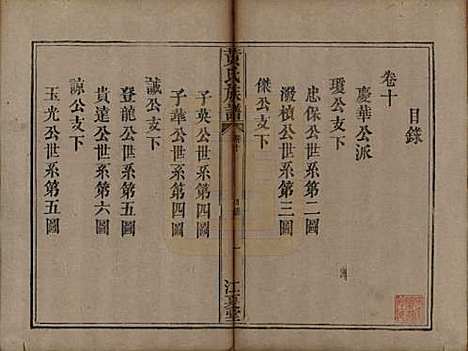 目錄
卷十
慶華公派
瓊公支下
忠保公世系第二圖
潑槙公世系第三圖
傑公支下
黃氏族譜
卷十
目錄
一
江夏堂
子英公世系第四圖
子華公世系第四圖
誠公支下
登龍公世系第五圖
貴達公世系第六圖
諒公支下
玉光公世系第五圖